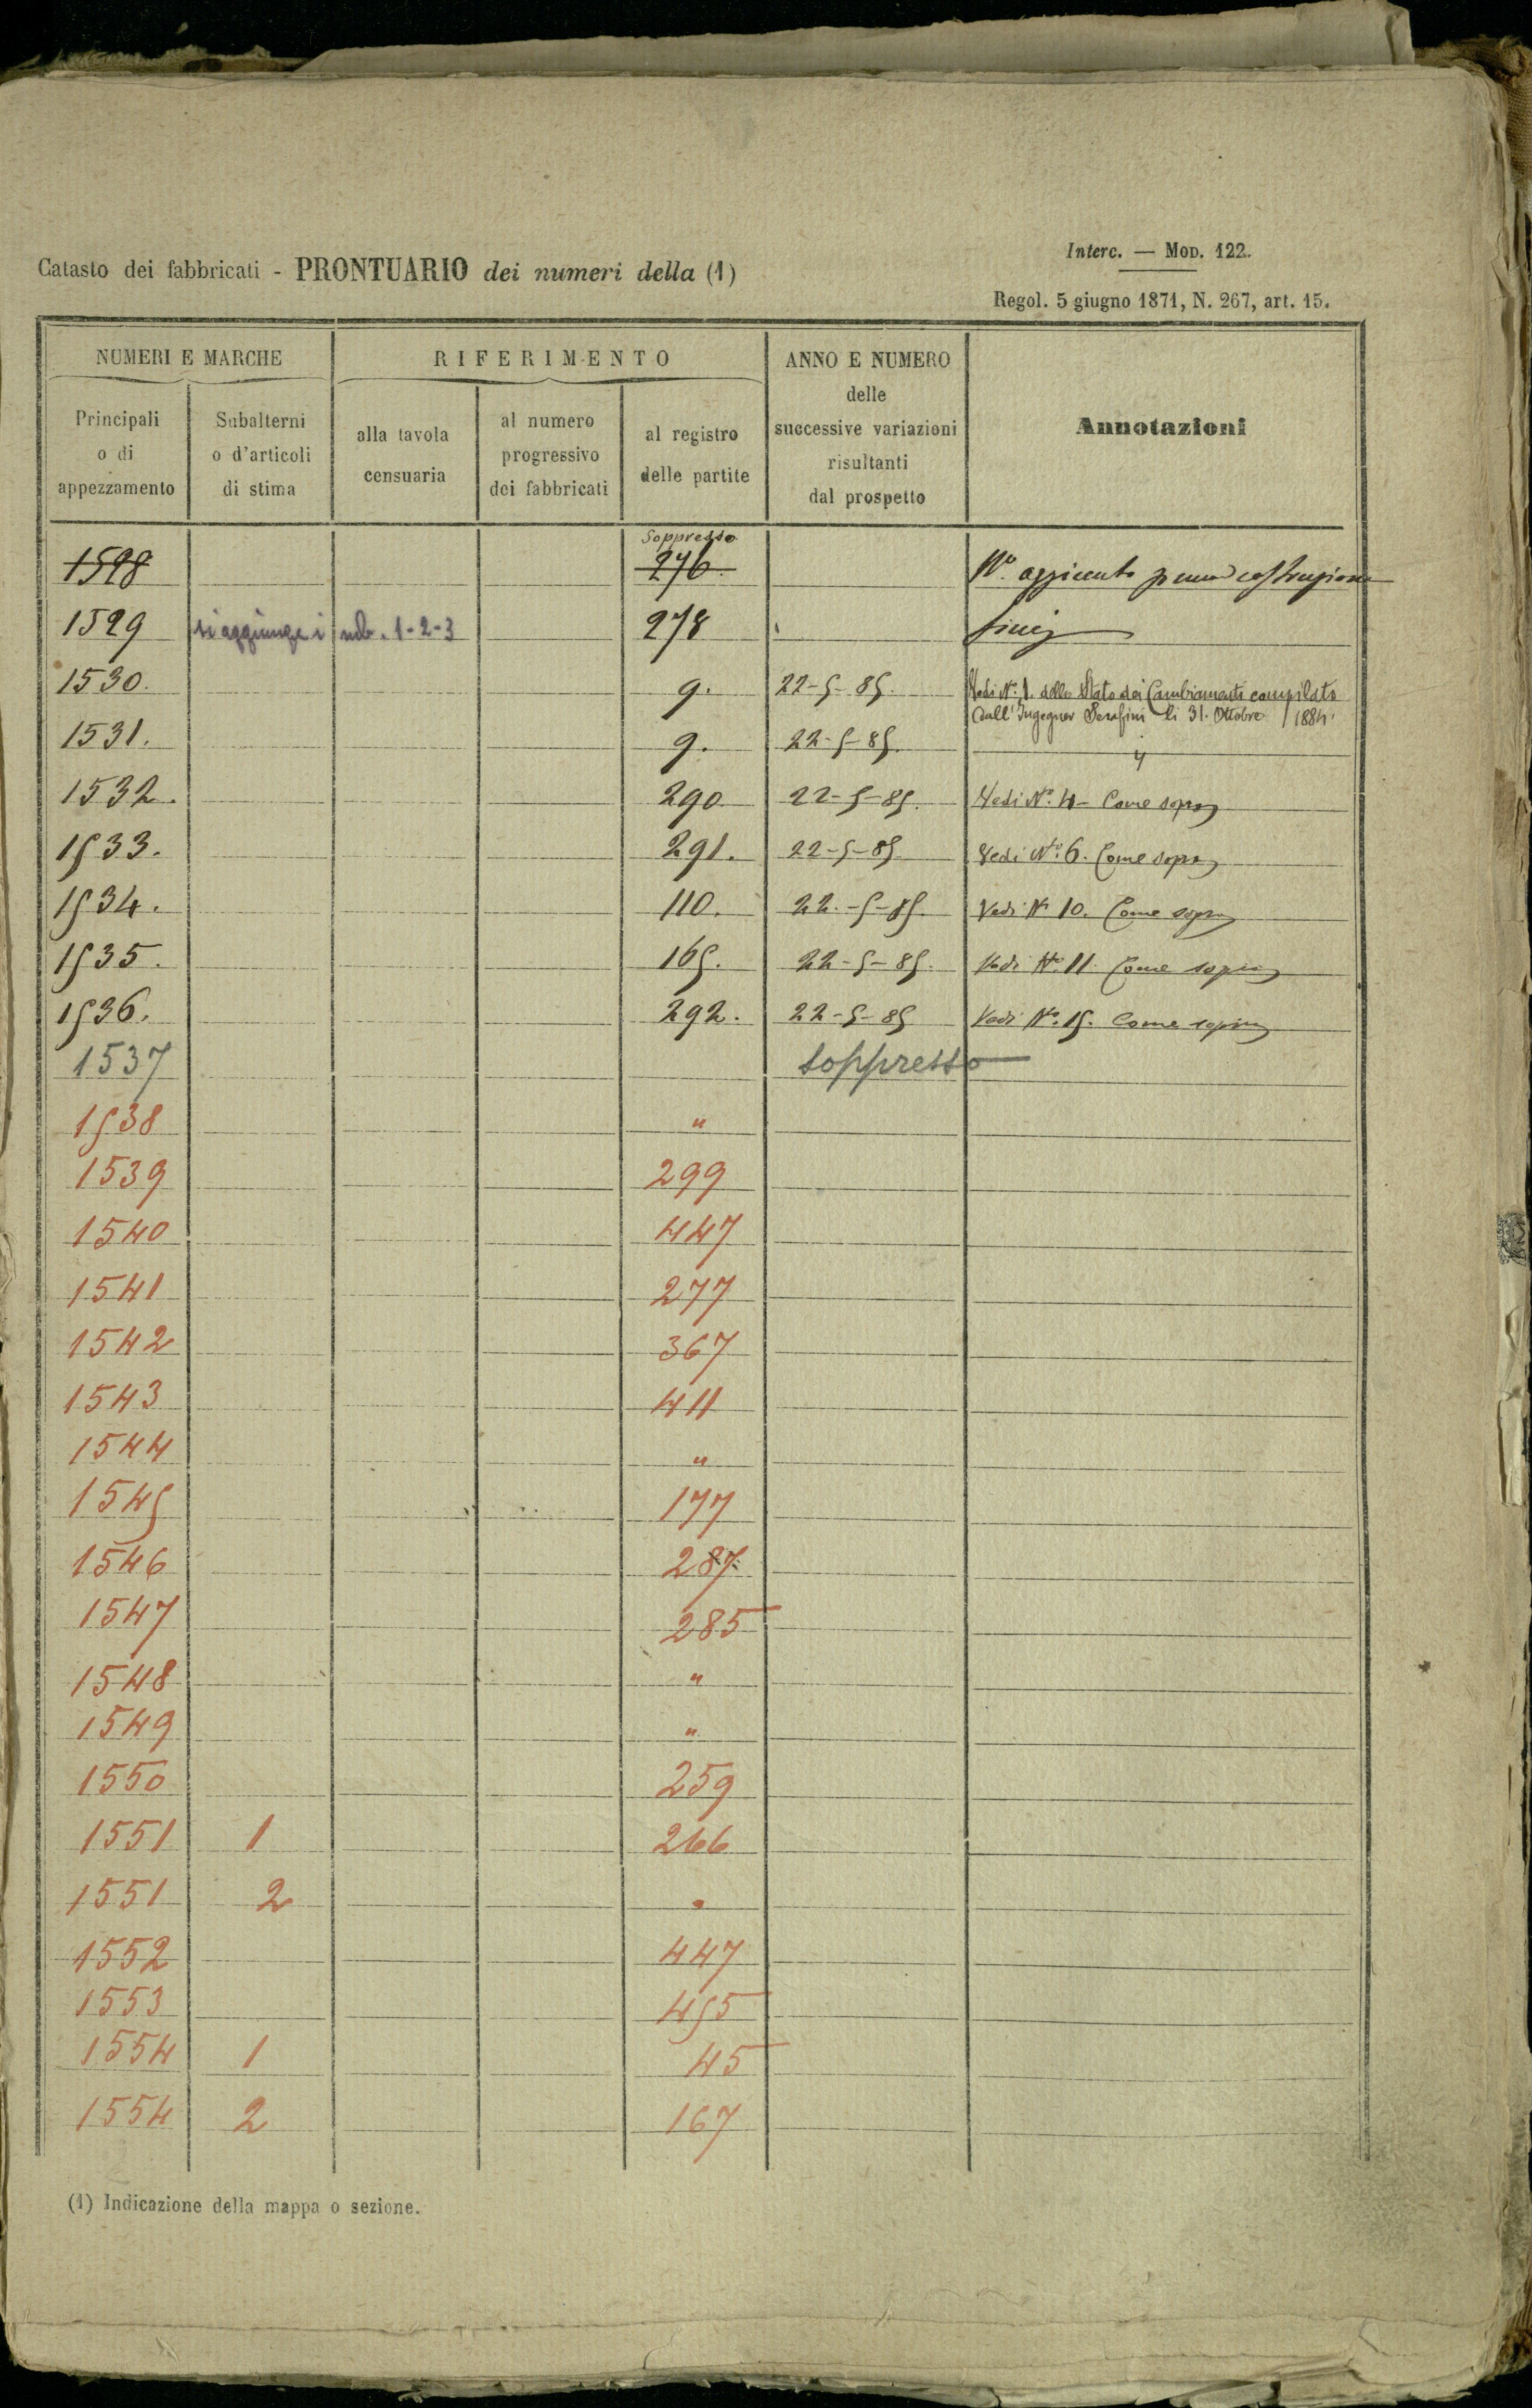 Interc. — Mod. 122.
Catasto dei fabbricati - PRONTUARIO dei numeri della (1)
Regol. 5 giugno 1871, N. 267, art. 15.
NUMERI E MARCHE
RIFERIMENTO
ANNO E NUMERO
delle
successive variazioni
risultanti
dal prospetto
Annotazioni
Principali
o di
appezzamento
Subalterni
o d'articoli
di stima
alla tavola
censuaria
al numero
progressivo
dei fabbricati
al registro
delle partite
Soppresso
1528 276. No.
1529 si aggiunge i sub. 1-2-3 278
1530. 9. 22-5-85. Vedi No. 1. dello Stato dei Cambiamenti compilato
dall'Ingegner Serafini li 31. Ottobre 1884.
1531. 9. 22-5-85. "
1532. 290 22-5-85. Vedi No. 4- Come sopra
1533. 291. 22-5-85 Vedi No. 6. Come sopra
1534. 110. 22.-5-85. Vedi N 10. Come sopra
1535. 165. 22-5-85. Vedi No. 11. Come sopra
1536. 292. 22-5-85 Vedi No. 15. Come sopra
1537 soppresso
1538 "
1539 299
1540 447
1541 277
1542 367
1543 411
1544 "
1545 177
1546 287
1547 285
1548 "
1549 "
1550 259
1551 1 266
1551 2 "
1552 447
1553 455
1554 1 45
1554 2 167
(1) Indicazione della mappa o sezione.